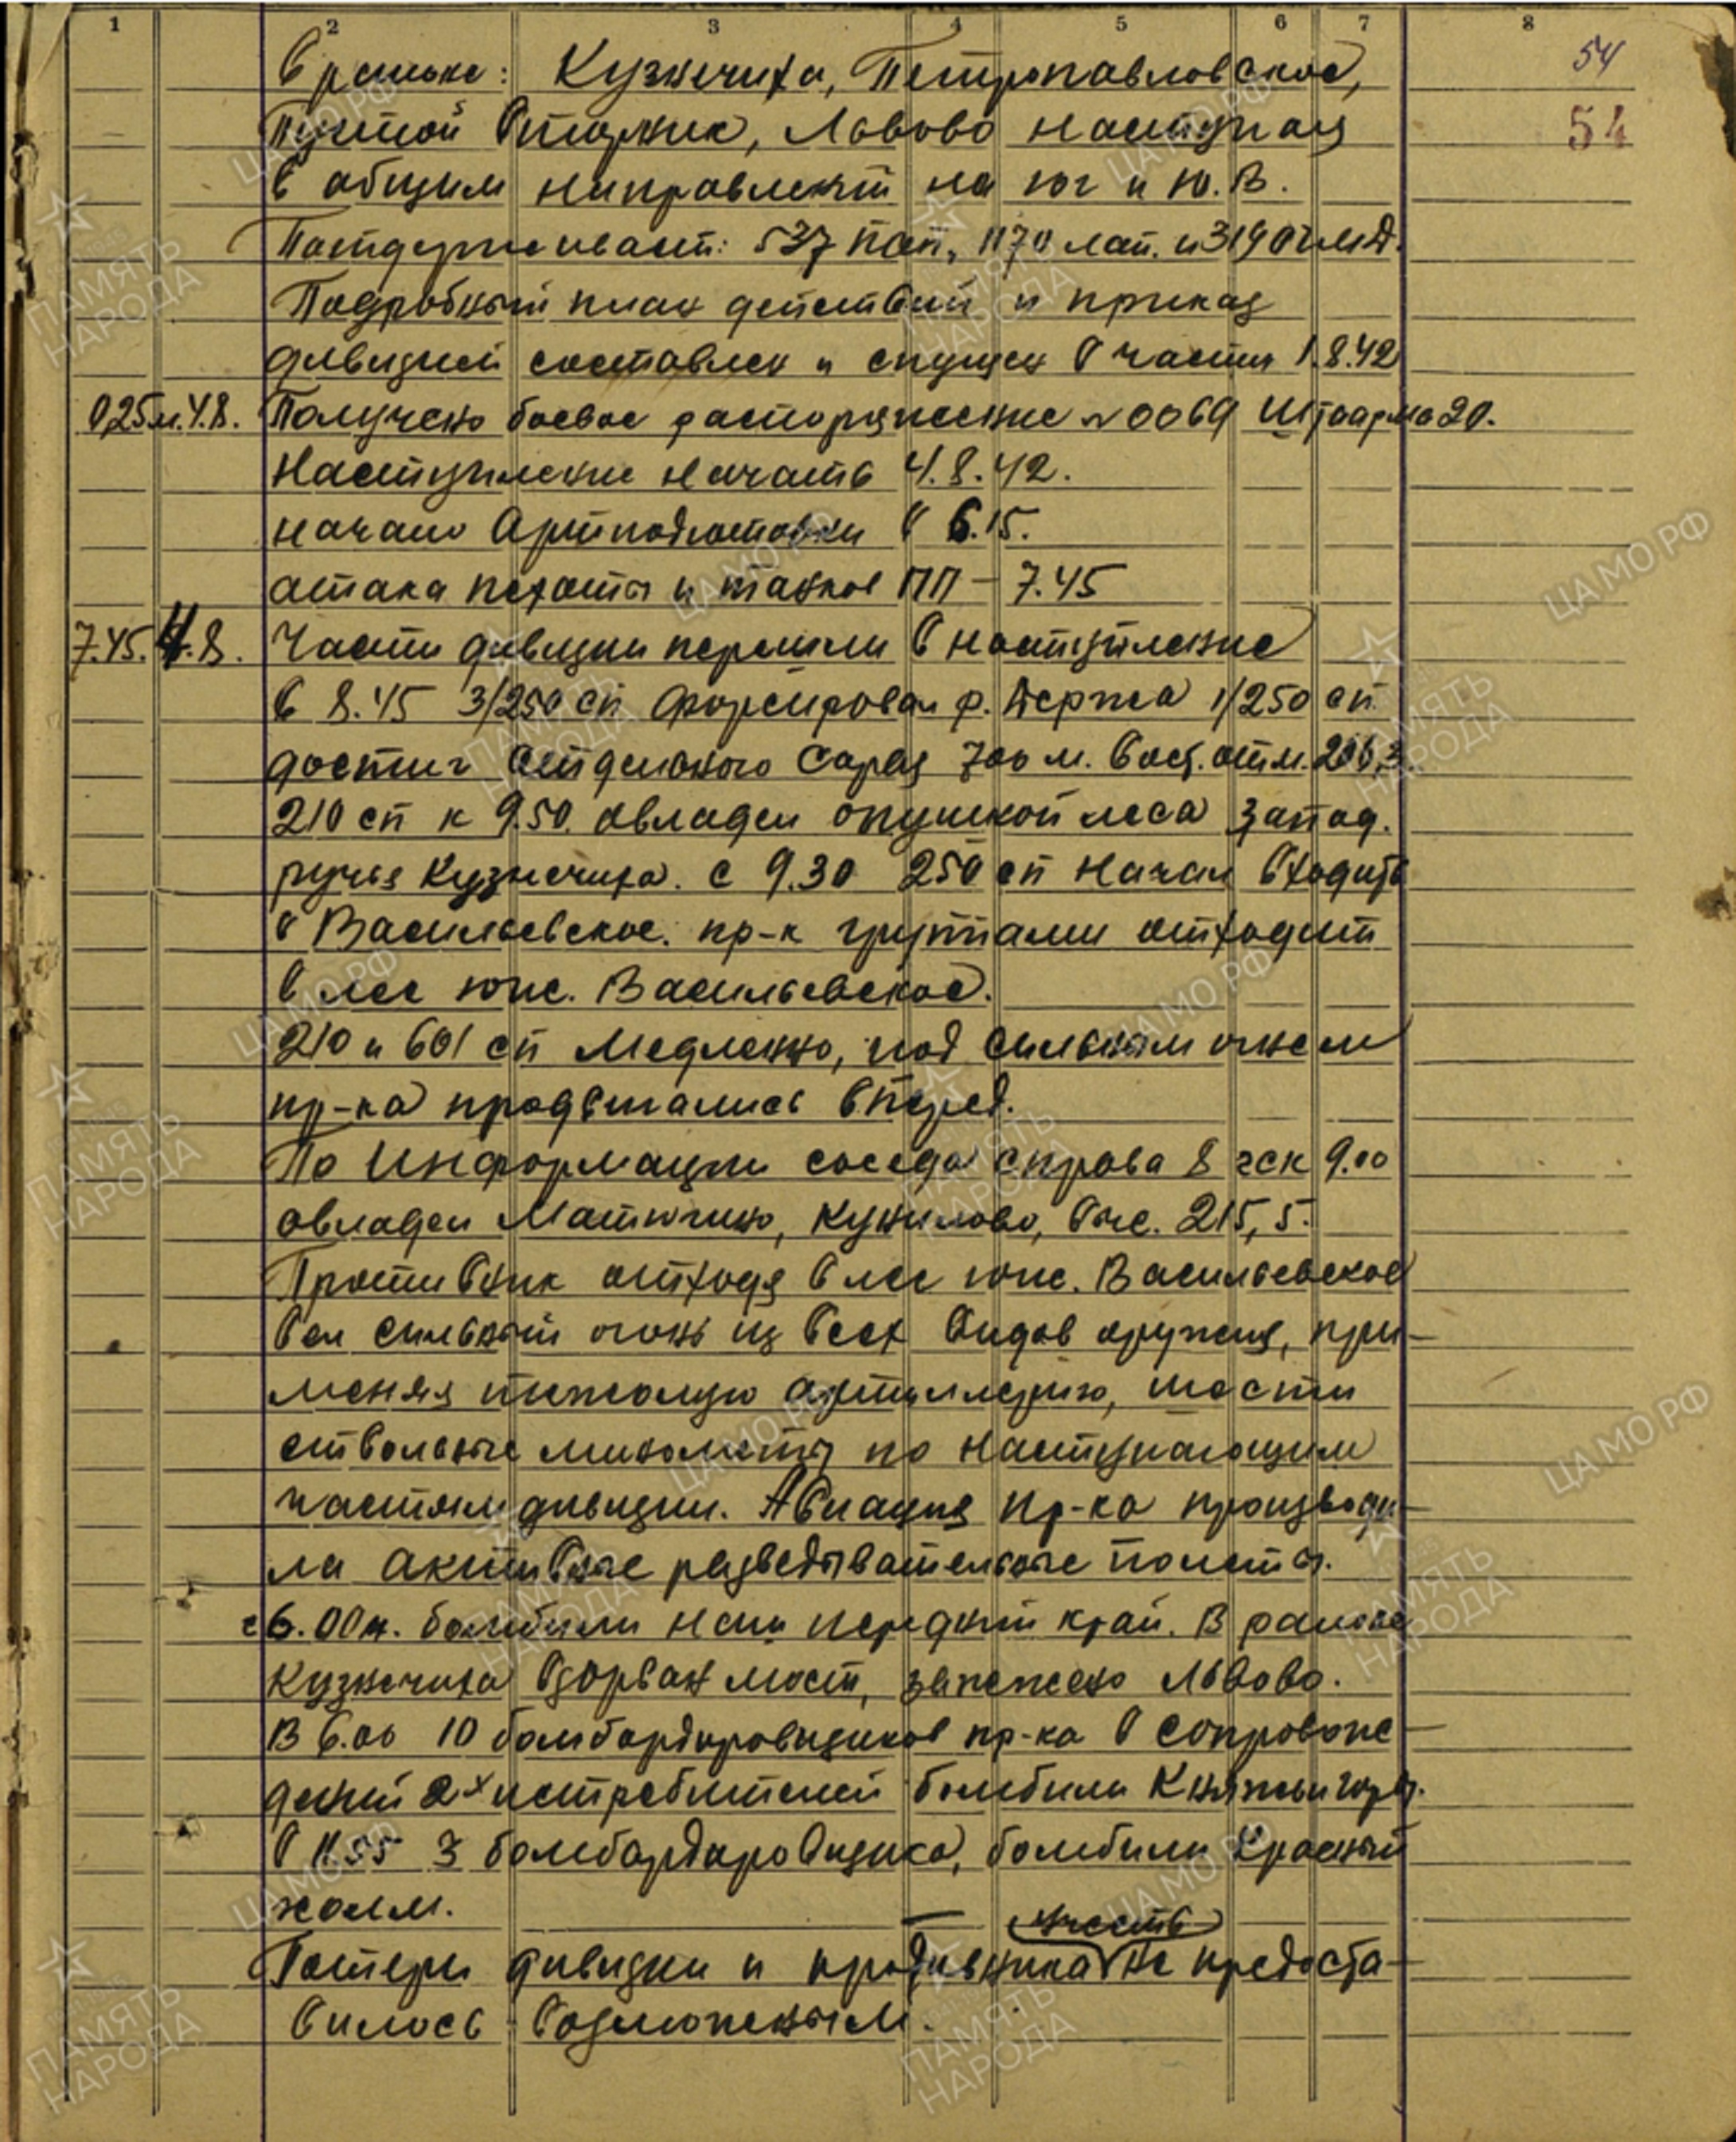 1 2 3 4 5 6 7 8
54
54
в районе: Кузнечиха, Петропавловское,
Пустой Вторник, Львово наступая
в общем направлении на юг и Ю.В.
Поддерживают: 537 пап, 1170 лап. и 319
Подробный план действий и приказ
дивизией составлен и спущен в части 1.8.42
0,25м.4.8. Получено боевое распоряжение №0069 Штаарма 20.
Наступление начать 4.8.42.
начало Артподготовки в 6.15.
атака пехоты и танков ПП – 7.45
7.45. 4.8. Части дивизии перешли в наступление
в 8.45 3/250 сп форсировал р. Держа 1/250 сп.
достиг отдельного Сарая 700 м. вост. отм.
210 сп к 9.50. овладел опушкой леса запад.
ручья Кузнечиха. с 9.30 250 сп начал входить
в Васильевское. пр-к группами отходит
в лес южн. Васильевское.
210 и 601 сп медленно, под сильным огнем
пр-ка продвигались вперед.
По Информации соседа справа 8 гск 9.00
овладел Матюгино, Кунилово, выс. 215,5.
Противник отходя в лес южн. Васильевское
вел сильный огонь из всех видов оружия, при-
меняя тяжелую артиллерию, шести
ствольные минометы по наступающим
частям дивизии. Авиация пр-ка производи-
ла активные разведывательные полеты.
с 6.00м. бомбили наш передний край. В районе
Кузнечиха взорван мост, зажжено Львово.
В 6.00 10 бомбардировщиков пр-ка в сопровож-
дении 2х истребителей бомбили Княжьи горы.
в 11.55 3 бомбардировщика, бомбили Красный
холм.
учесть
Потери дивизии и противника не предоста-
вилось возможным.
ЦА МО РФ
ПАМЯТЬ НАРОДА